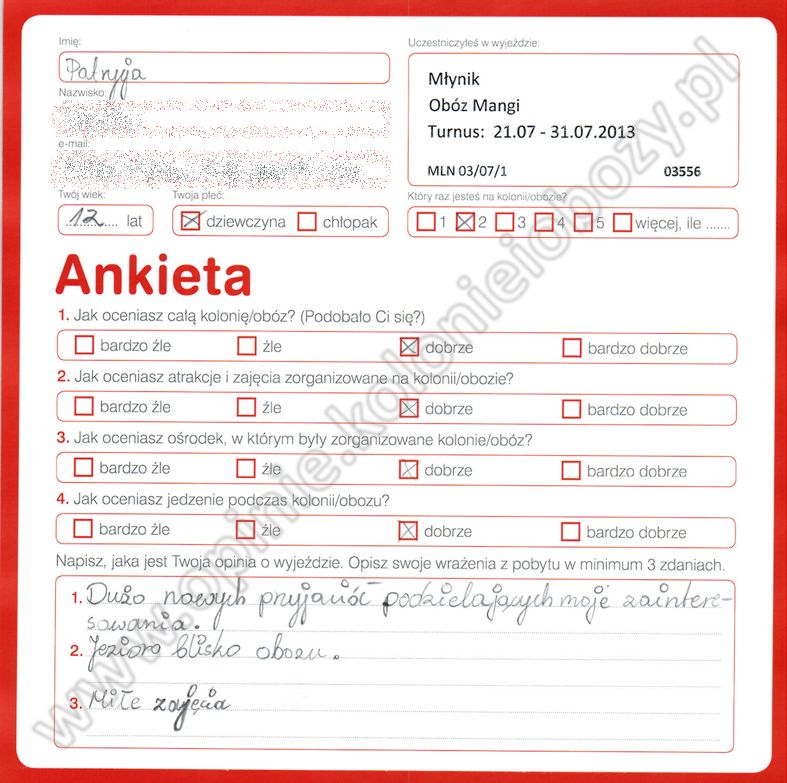 Imię:
Patrycja
Nazwisko:
e-mail:
Twój wiek:
12 lat
Twoja płeć:
dziewczyna chłopak
Uczestniczyłeś w wyjeździe:
Młynik
Obóz Mangi
Turnus: 21.07 - 31.07.2013
MLN 03/07/1 03556
Który raz jesteś na kolonii/obozie?
1 2 3 4 5 więcej, ile .......
Ankieta
1. Jak oceniasz całą kolonię/obóz? (Podobało Ci się?)
bardzo źle źle dobrze bardzo dobrze
2. Jak oceniasz atrakcje i zajęcia zorganizowane na kolonii/obozie?
bardzo źle źle dobrze bardzo dobrze
3. Jak oceniasz ośrodek, w którym były zorganizowane kolonie/obóz?
bardzo źle źle dobrze bardzo dobrze
4. Jak oceniasz jedzenie podczas kolonii/obozu?
bardzo źle źle dobrze bardzo dobrze
Napisz, jaka jest Twoja opinia o wyjeździe. Opisz swoje wrażenia z pobytu w minimum 3 zdaniach.
1. Dużo nowych przyjaciół podzielających moje zaintere-
sowania.
2. Jezioro blisko obozu.
3. Miłe zajęcia
www.opinie.kolonieiobozy.pl